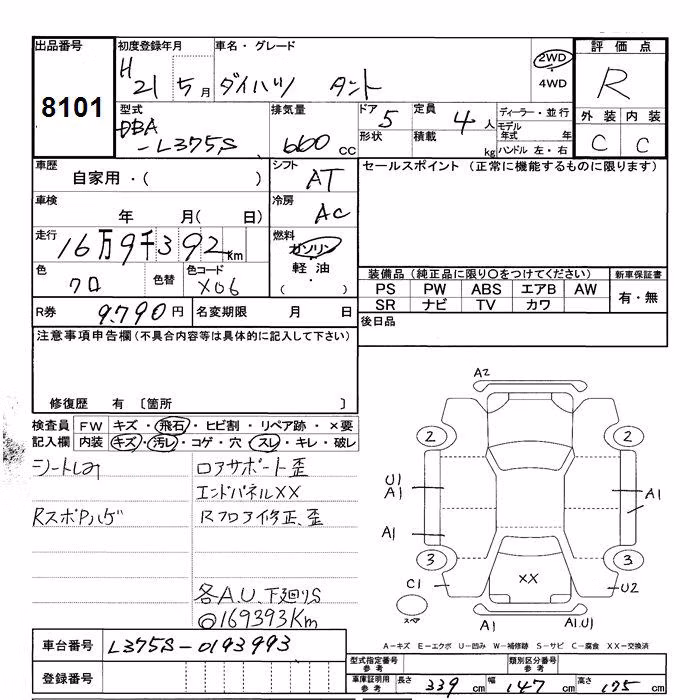 出品番号
8101
初度登録年月
H21 5月
車名・グレード
ダイハツ タント
2WD
4WD
評価点
R
外装 内装
C C
型式
DBA
-L375S
排気量
660 cc
ドア 5
形状
定員 4人
積載 kg
ディーラー・並行
モデル年式 年
ハンドル 左・右
車歴
自家用・( )
シフト
AT
セールスポイント (正常に機能するものに限ります)
車検
年 月( 日)
冷房
AC
走行
16万9千392Km
燃料
ガソリン
軽油
( )
色
クロ
色替
色コード
X06
装備品(純正品に限り○をつけてください)
PS PW ABS エアB AW
SR ナビ TV カワ
新車保証書
有・無
R券 9,790円
名変期限 月 日
後日品
注意事項申告欄(不具合内容等は具体的に記入して下さい)
修復歴 有 〔箇所 〕
検査員記入欄
FW キズ・飛石・ヒビ割・リペア跡・×要
内装 キズ・汚レ・コゲ・穴・スレ・キレ・破レ
シートしみ
ロアサポート歪
エンドパネルXX
RスポPハゲ
Rフロア修正、歪
各A.U.下廻りS
@169393Km
A2
2
2
U1
A1
A1
A1
3
3
C1
U2
XX
スペア
A1
A1.U1
車台番号 L375S-0193993
登録番号
A-キズ E-エクボ U-凹み W-補修跡 S-サビ C-腐食 XX-交換済
型式指定番号 参考
類別区分番号 参考
車庫証明用 参考
長さ 339 cm 幅 147 cm 高さ 175 cm